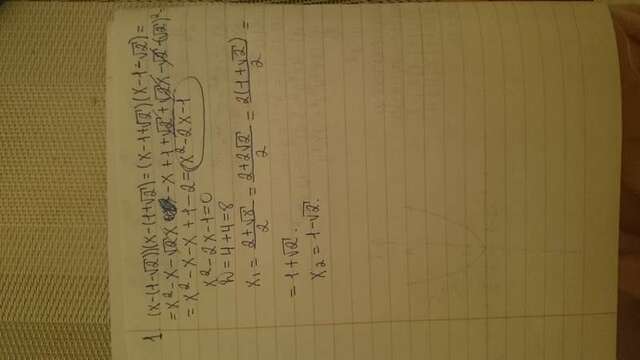 1. (x-(1-√2))(x-(1+√2))=(x-1+√2)(x-1-√2)=
=x²-x-√2x -x+1+√2+√2x-√2-(√2)²
=x²-x-x+1-2=x²-2x-1
x²-2x-1=0
D=4+4=8
x₁=(2+√8)/2=(2+2√2)/2=(2(1+√2))/2=
=1+√2.
x₂=1-√2.